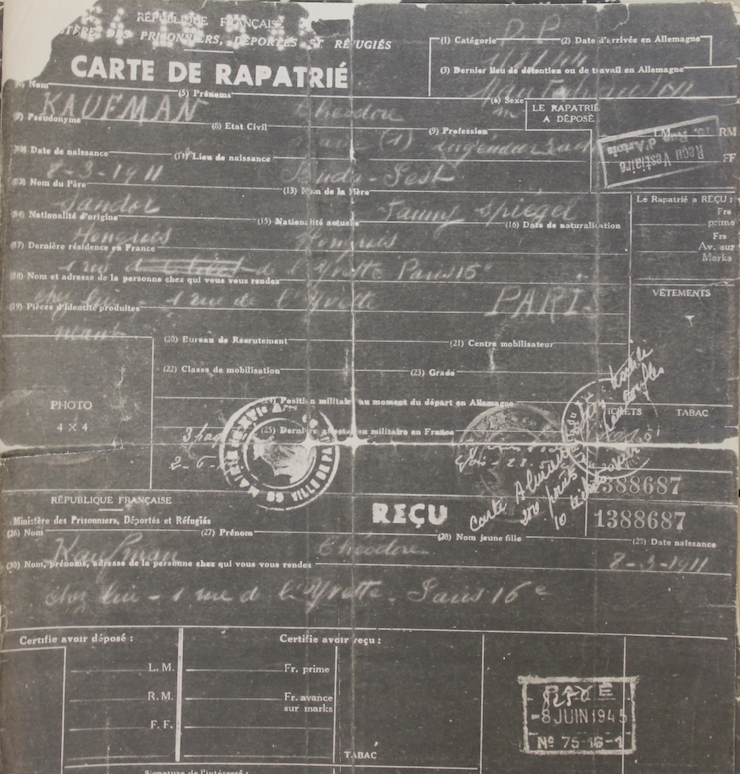 RÉPUBLIQUE FRANÇAISE
DES PRISONNIERS, DÉPORTÉS ET RÉFUGIÉS
CARTE DE RAPATRIÉ
(1) Catégorie D P (2) Date d'arrivée en Allemagne
(3) Dernier lieu de détention ou de travail en Allemagne
Mauthausen
Nom (5) Prénoms (6) Sexe
KAUFMAN Théodore m
LE RAPATRIÉ
A DÉPOSÉ
Pseudonyme (8) Etat Civil (9) Profession
(1)
RM
FF
Reçu Vestiaire
Rue d'Artois
Date de naissance (11) Lieu de naissance
8-3-1911 Buda Pest
Nom du Père (13) Nom de la Mère
Sandor Fanny Spiegel
Le Rapatrié a REÇU :
Frs
prime
Frs
Av. sur
Marks
Nationalité d'origine (15) Nationalité actuelle (16) Date de naturalisation
Hongrois Hongrois
(17) Dernière résidence en France
1 rue de l'Yvette Paris 16e
(18) Nom et adresse de la personne chez qui vous vous rendez
chez lui - 1 rue de l'Yvette PARIS
VÊTEMENTS
(19) Pièces d'identité produites
néant
(20) Bureau de Recrutement (21) Centre mobilisateur
(22) Classe de mobilisation (23) Grade
PHOTO
4 X 4
(24) Position militaire au moment du départ en Allemagne
TICKETS TABAC
(25) Dernière affectation militaire en France
MAIRIE VILLE DE PARIS
Carte
10 tickets
1388687
1388687
RÉPUBLIQUE FRANÇAISE
Ministère des Prisonniers, Déportés et Réfugiés
REÇU
(26) Nom (27) Prénom (28) Nom jeune fille (29) Date naissance
Kaufman Théodore 8-3-1911
(30) Nom, prénoms, adresse de la personne chez qui vous vous rendez
chez lui - 1 rue de l'Yvette - Paris 16e
Certifie avoir déposé : Certifie avoir reçu :
L. M. Fr. prime
R. M. Fr. avance
sur marks
F. F.
TABAC
PAYÉ
-8 JUIN 1945
No 75-16-1
Signature de l'intéressé :